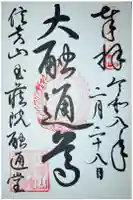 奉拝
令和八年
二月二十八日
大融通尊
信貴山玉蔵院融通堂